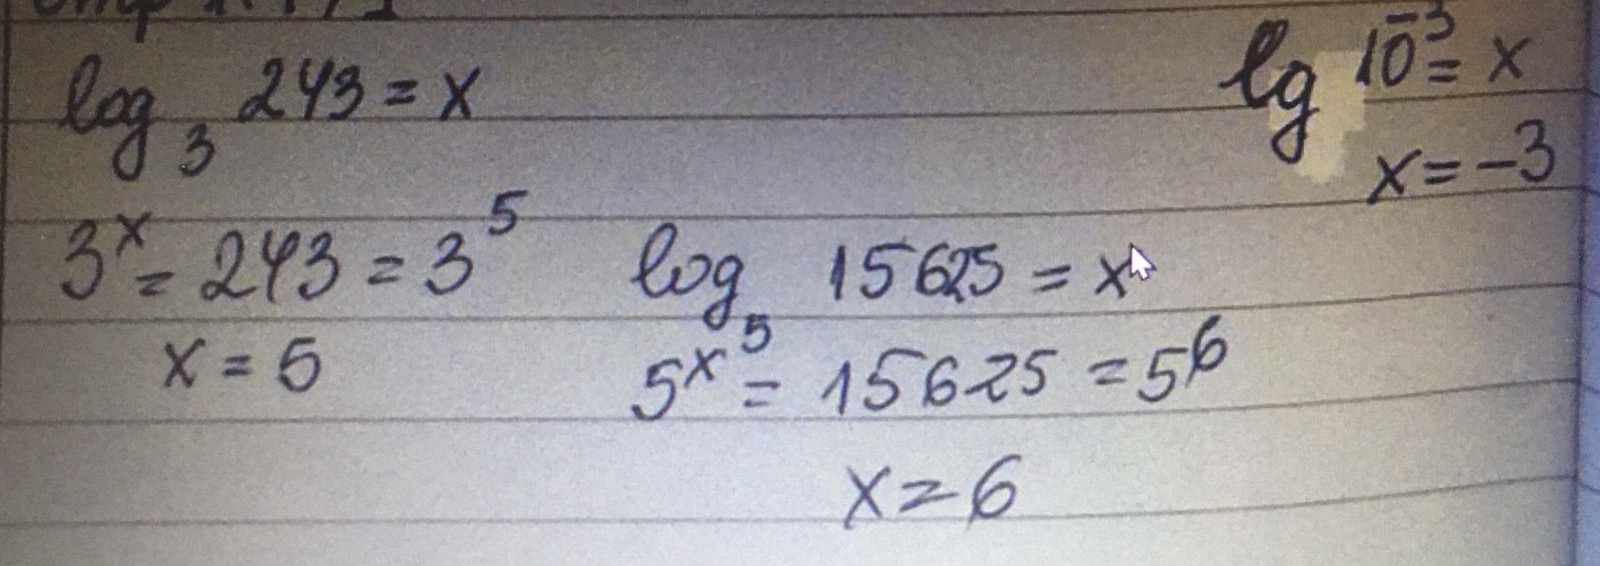 log₃ 243 = x
3ˣ = 243 = 3⁵
x = 5
log₅ 15625 = x
5ˣ = 15625 = 5⁶
x = 6
lg 10⁻³ = x
x = -3